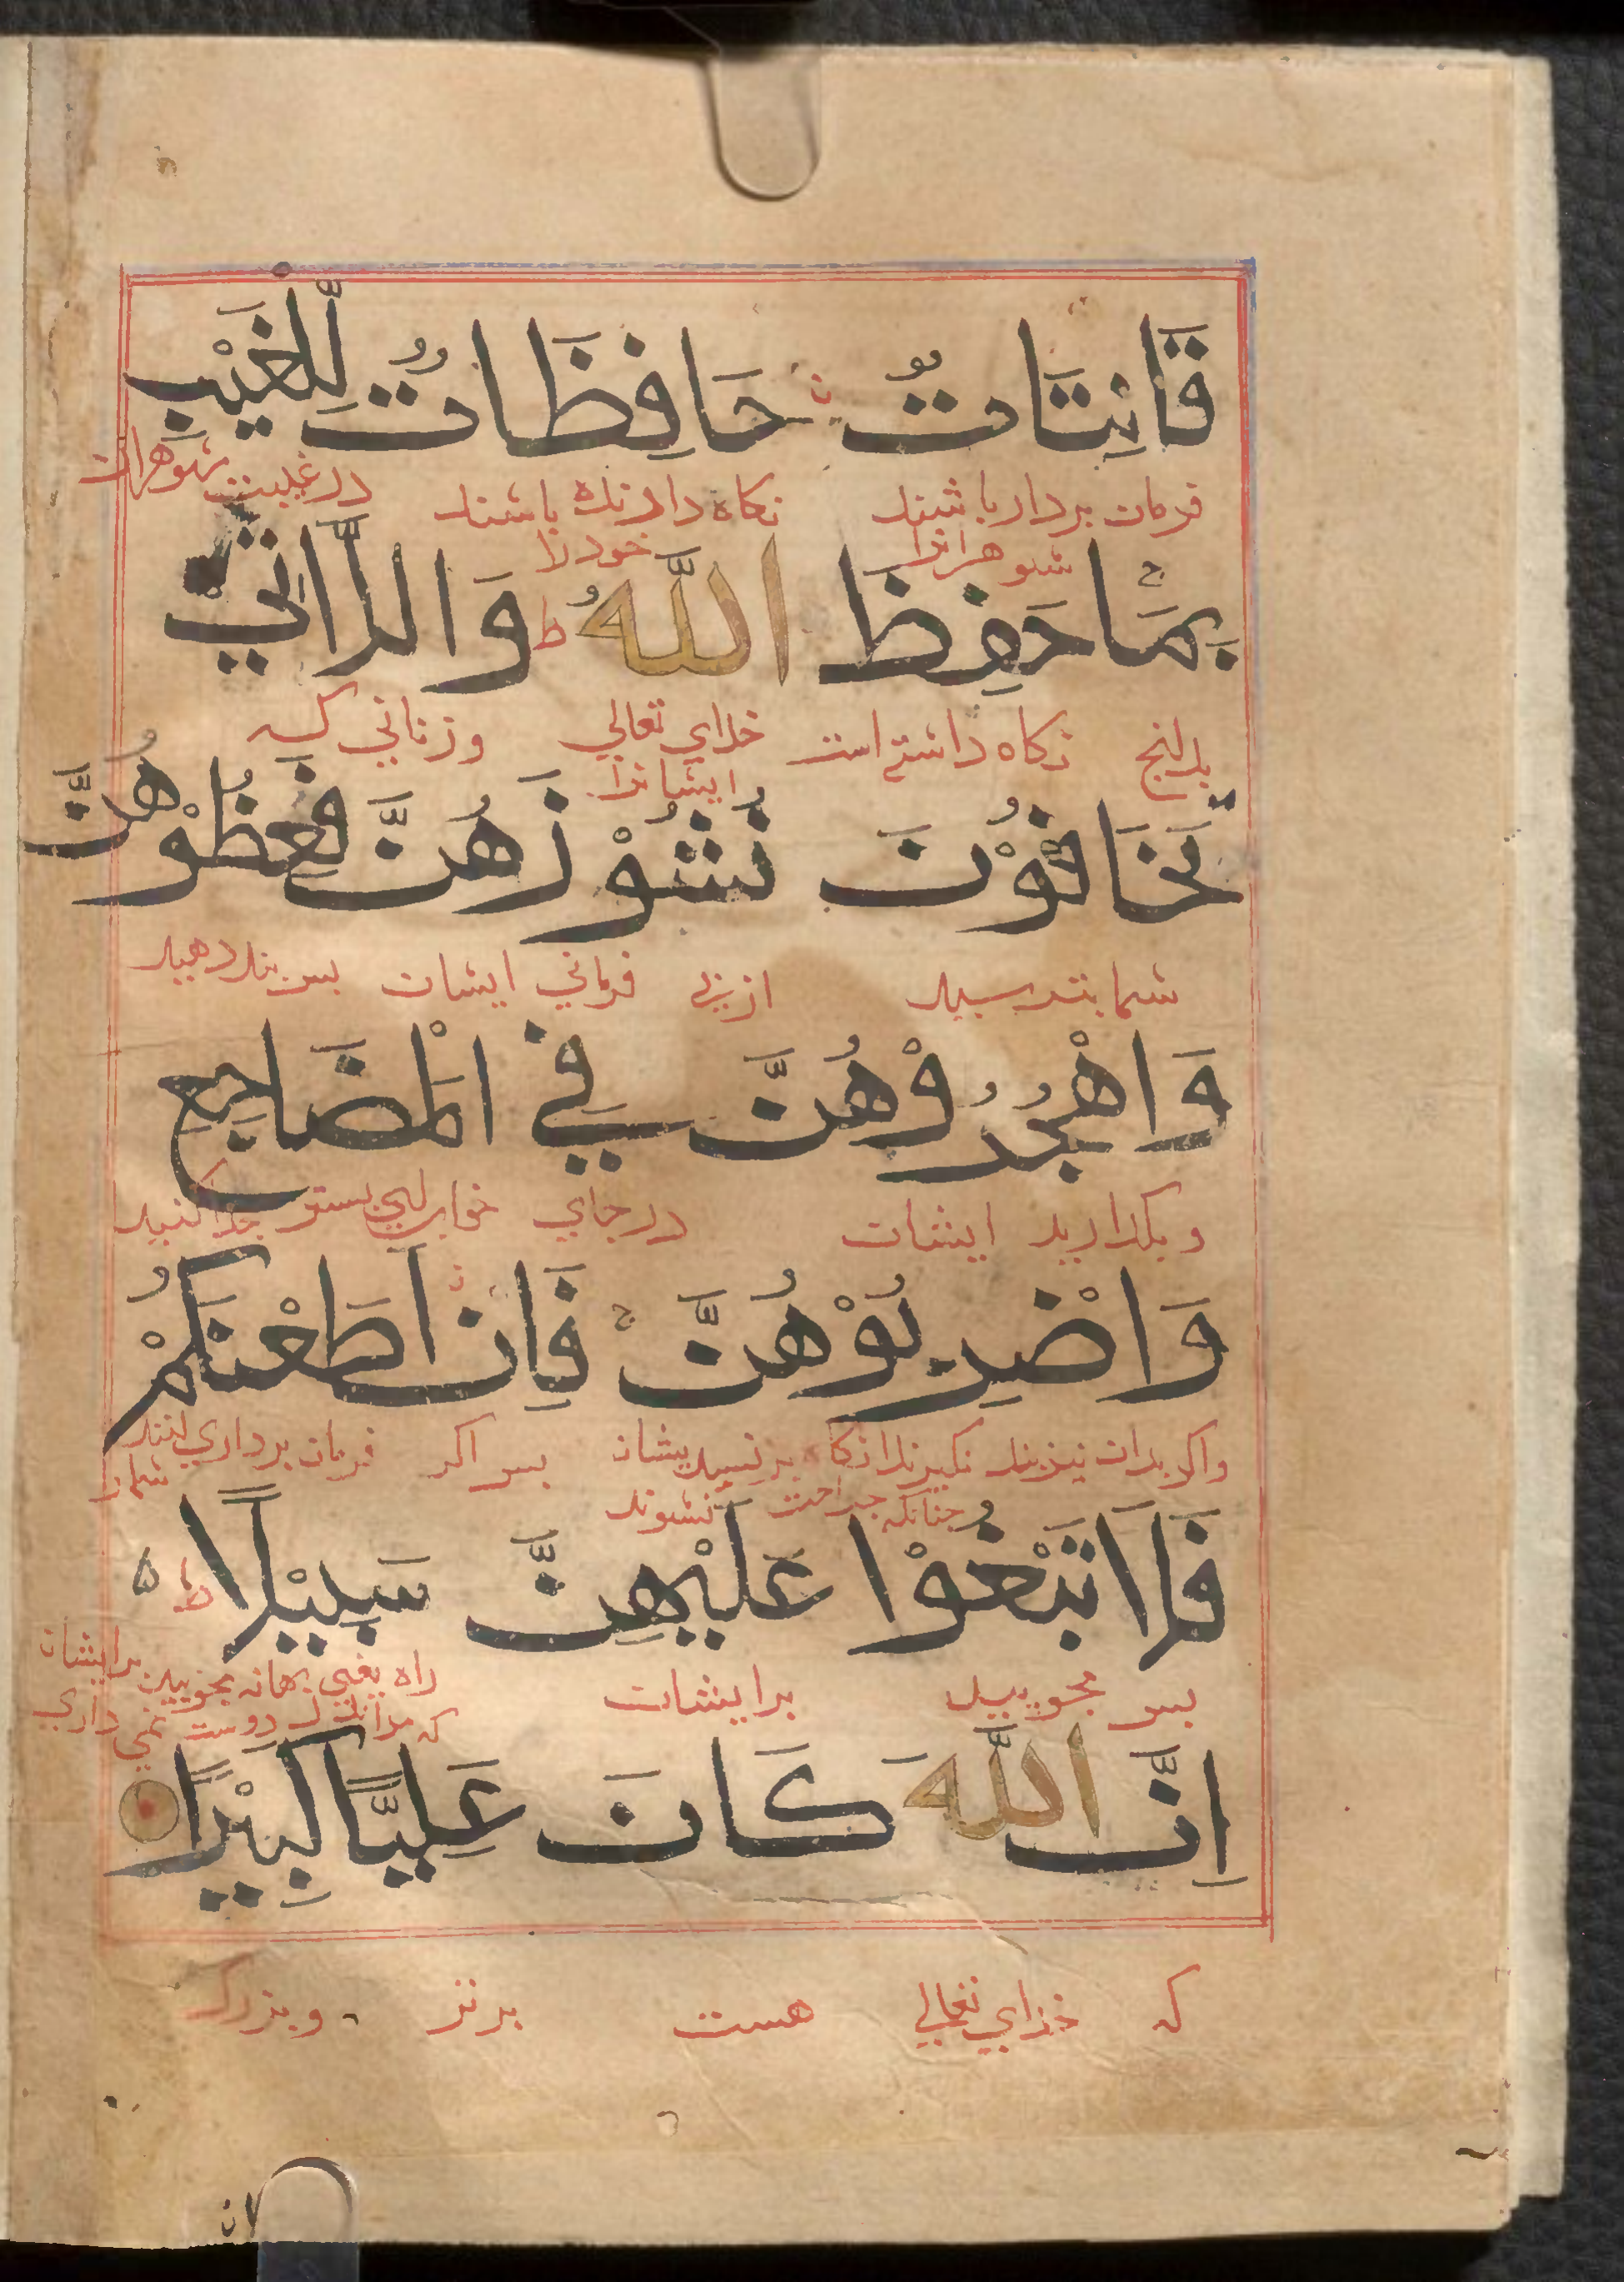 قَانِتَاتٌ حَافِظَاتٌ لِّلْغَيْبِ
فرمان بردار باشند نكاه دارنده باشند در غيبت شوهران
شوهرانرا خودرا
بِمَا حَفِظَ اللّٰهُ ط وَالّٰتِيْ
بدانچ نكاه داشته است خداي تعالي و زناني كه
ايشانرا
تَخَافُوْنَ نُشُوْزَهُنَّ فَعِظُوْهُنَّ
شما بترسيد از بي فرماني ايشان بس بند دهيد
وَاهْجُرُوْهُنَّ فِي الْمَضَاجِعِ
و بكذاريد ايشان در جاي خواب يعني بستر جدا كنيد
وَاضْرِبُوْهُنَّ فَاِنْ اَطَعْنَكُمْ
واكر بدان نيز بند نكيرند بزنيد يشان بس اكر فرمان برداري كنند
شمارا
چنانكه جراحت نشوند
فَلَا تَبْغُوْا عَلَيْهِنَّ سَبِيْلًا ط ه
بس مجوييد برايشان راه يعني بهانه مجوييد برايشان
كه دوست نمي داري
اِنَّ اللّٰهَ كَانَ عَلِيًّا كَبِيْرًا
كه خداي تعالي هست برتر و بزرك